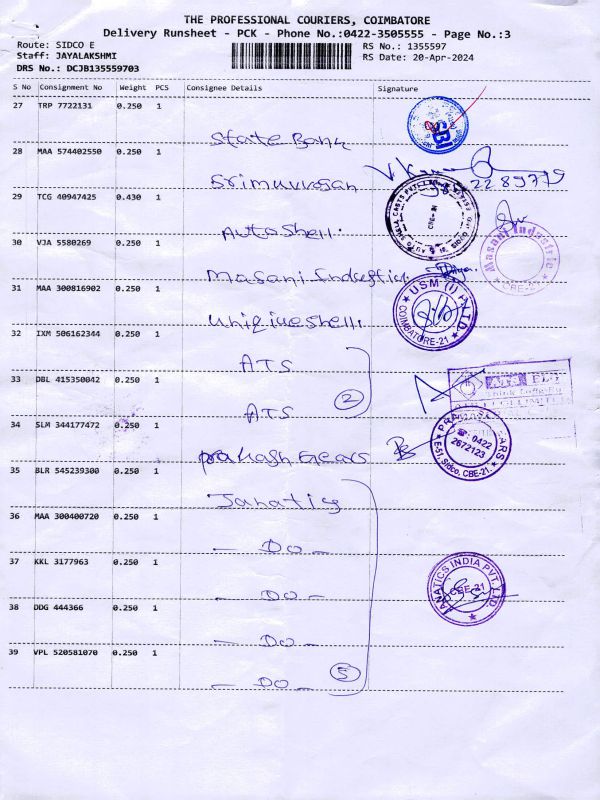 THE PROFESSIONAL COURIERS, COIMBATORE
Delivery Runsheet - PCK - Phone No.:0422-3505555 - Page No.:3
Route: SIDCO E
Staff: JAYALAKSHMI
DRS No.: DCJB135559703
RS No.: 1355597
RS Date: 20-Apr-2024
S No Consignment No Weight PCS Consignee Details Signature
27 TRP 7722131 0.250 1 State Bank
28 MAA 574402550 0.250 1
29 TCG 40947425 0.430 1 Autoshell.
CBE-21
30 VJA 5580269 0.250 1 Masani
Masani Industrie
CBE-21
31 MAA 300816902 0.250 1
USM (I) P LTD
COIMBATORE-21
32 IXM 506162344 0.250 1 ATS
33 DBL 415350042 0.250 1 ATS
2
34 SLM 344177472 0.250 1 prakash Gears
0422
2672123
E-51, Sidco, CBE-21.
35 BLR 545239300 0.250 1 Janatics
36 MAA 300400720 0.250 1 - Do -
37 KKL 3177963 0.250 1 - Do -
JANATICS INDIA PVT. LTD.
CBE-21
38 DDG 444366 0.250 1 - Do -
39 VPL 520581070 0.250 1 - Do -
5